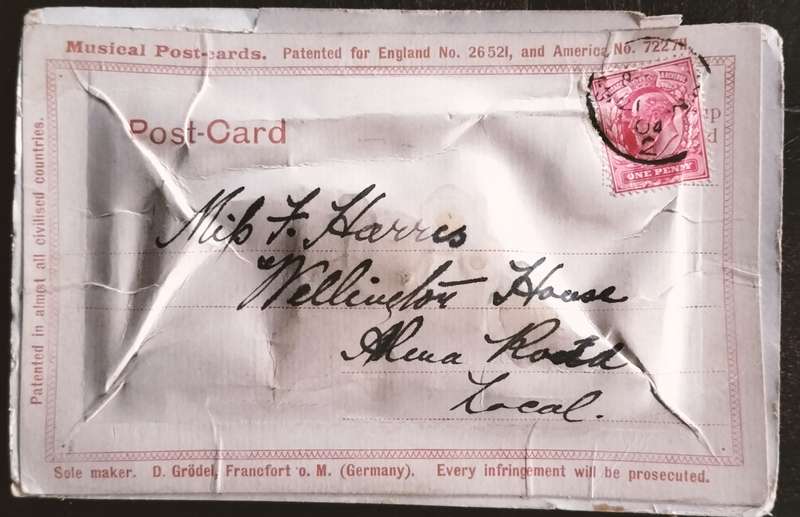 Musical Post-cards. Patented for England No. 26521, and America No. 7227
Patented in almost all civilised countries.
Post-Card
ONE PENNY
Miss F. Harris
Wellington House
Alma Road
Local.
Sole maker. D. Grödel, Francfort o. M. (Germany). Every infringement will be prosecuted.